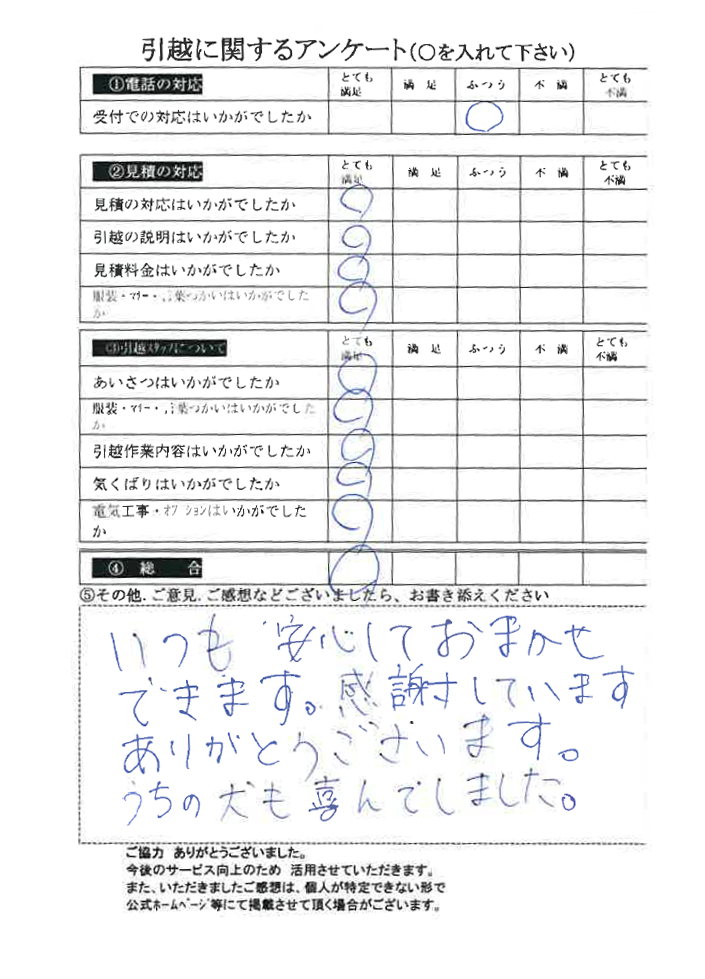 引越に関するアンケート(〇を入れて下さい)
①電話の対応 とても満足 満足 ふつう 不満 とても不満
受付での対応はいかがでしたか
②見積の対応 とても満足 満足 ふつう 不満 とても不満
見積の対応はいかがでしたか
引越の説明はいかがでしたか
見積料金はいかがでしたか
服装・マナー・言葉つかいはいかがでした
か
③引越スタッフについて とても満足 満足 ふつう 不満 とても不満
あいさつはいかがでしたか
服装・マナー・言葉つかいはいかがでした
か
引越作業内容はいかがでしたか
気くばりはいかがでしたか
電気工事・オプションはいかがでした
か
④ 総 合
⑤その他.ご意見.ご感想などございましたら、お書き添えください
いつも 安心しておまかせ
できます。感謝しています
ありがとうございます。
うちの犬も喜んでしました。
ご協力 ありがとうございました。
今後のサービス向上のため 活用させていただきます。
また、いただきましたご感想は、個人が特定できない形で
公式ホームページ等にて掲載させて頂く場合がございます。